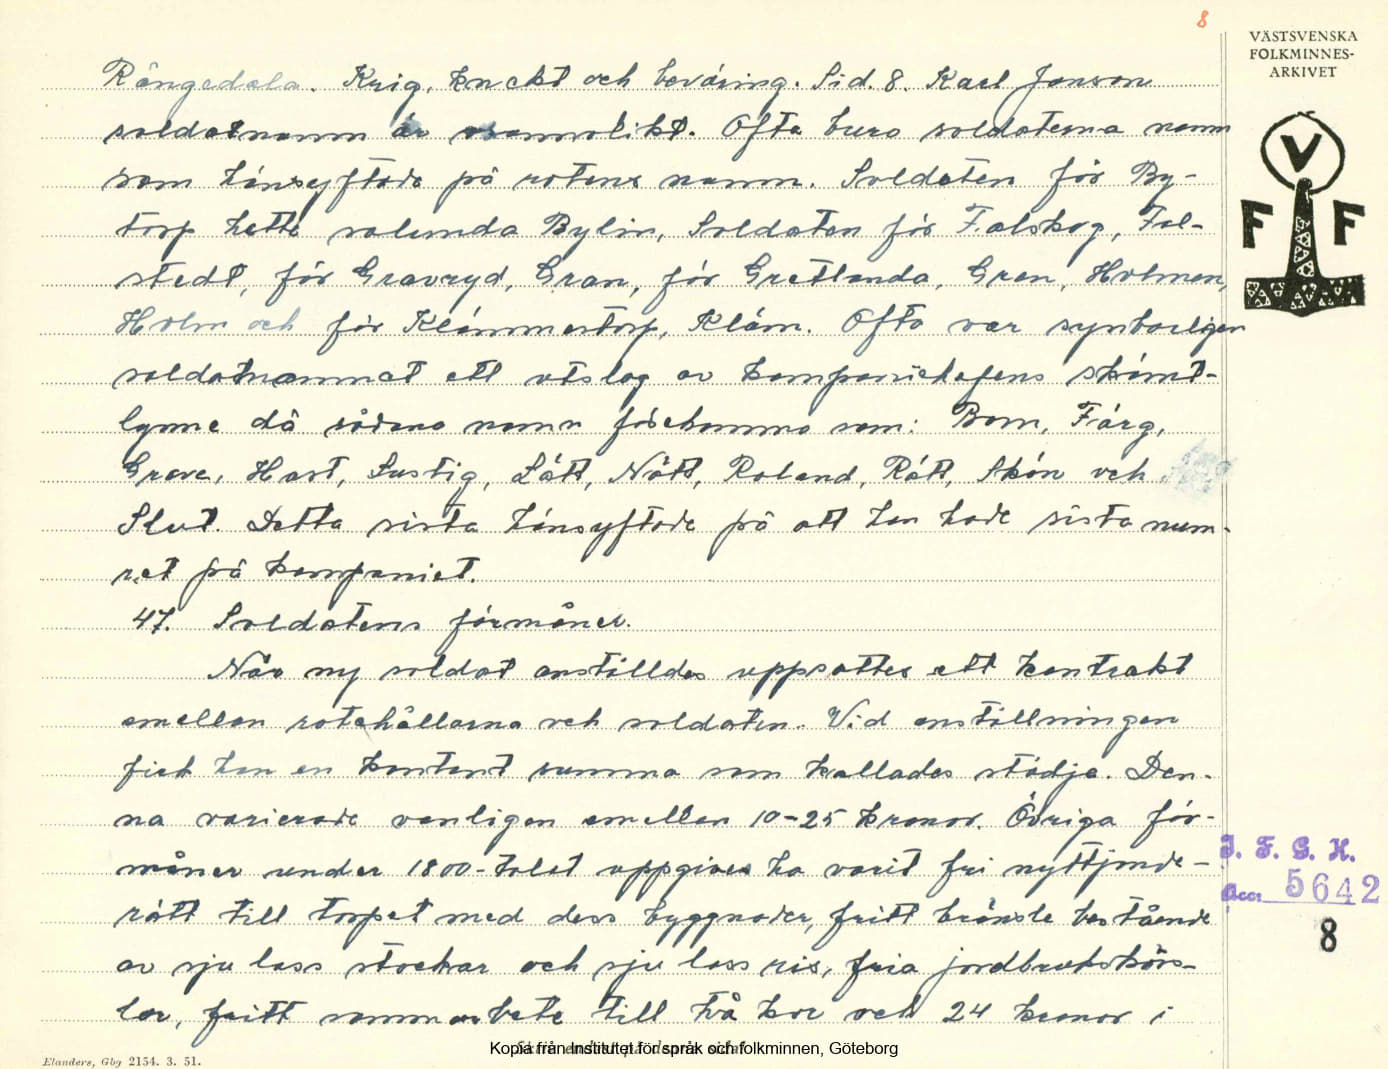 8
VÄSTSVENSKA
FOLKMINNES-
ARKIVET
V
F F
Rångedala. Krig, knekt och beväring. Sid. 8. Karl Jonson
soldatnamn är osannolikt. Ofta buro soldaterna namn
som hänsyftade på rotens namn. Soldaten för By-
torp hette salunda Bylin, Soldaten för Falskog, Fal-
stedt, för Gravryd, Gran, för Gretlanda, Gren, Holmen,
Holm och för Klämmestorp, Kläm. Ofta var synbarligen
soldatnamnet ett utslag av kompanichefens skämt-
lynne då sådana namn förekommo som: Bom, Färg,
Greve, Hast, Lustig, Lätt, Nätt, Roland, Rätt, Skön och
Slut. Detta sista hänsyftade på att han hade sista num-
ret på kompaniet.
47. Soldatens förmåner.
När ny soldat anställdes uppsattes ett kontrakt
emellan rotehållarna och soldaten. Vid anställningen
fick han en kontant summa som kallades städja. Den-
na varierade vanligen emellan 10-25 kronor. Övriga för-
måner under 1800-talet uppgives ha varit fri nyttjande-
rätt till torpet med dess byggnader, fritt bränsle bestående
av sju lass stockar och sju lass ris, fria jordbrukskörs-
lor, fritt sommarbete till två kor och 24 kronor i
I. F. G. H.
Acc. 5642
8
Kopia från Institutet för språk och folkminnen, Göteborg
Elanders, Gbg 2154. 3. 51.